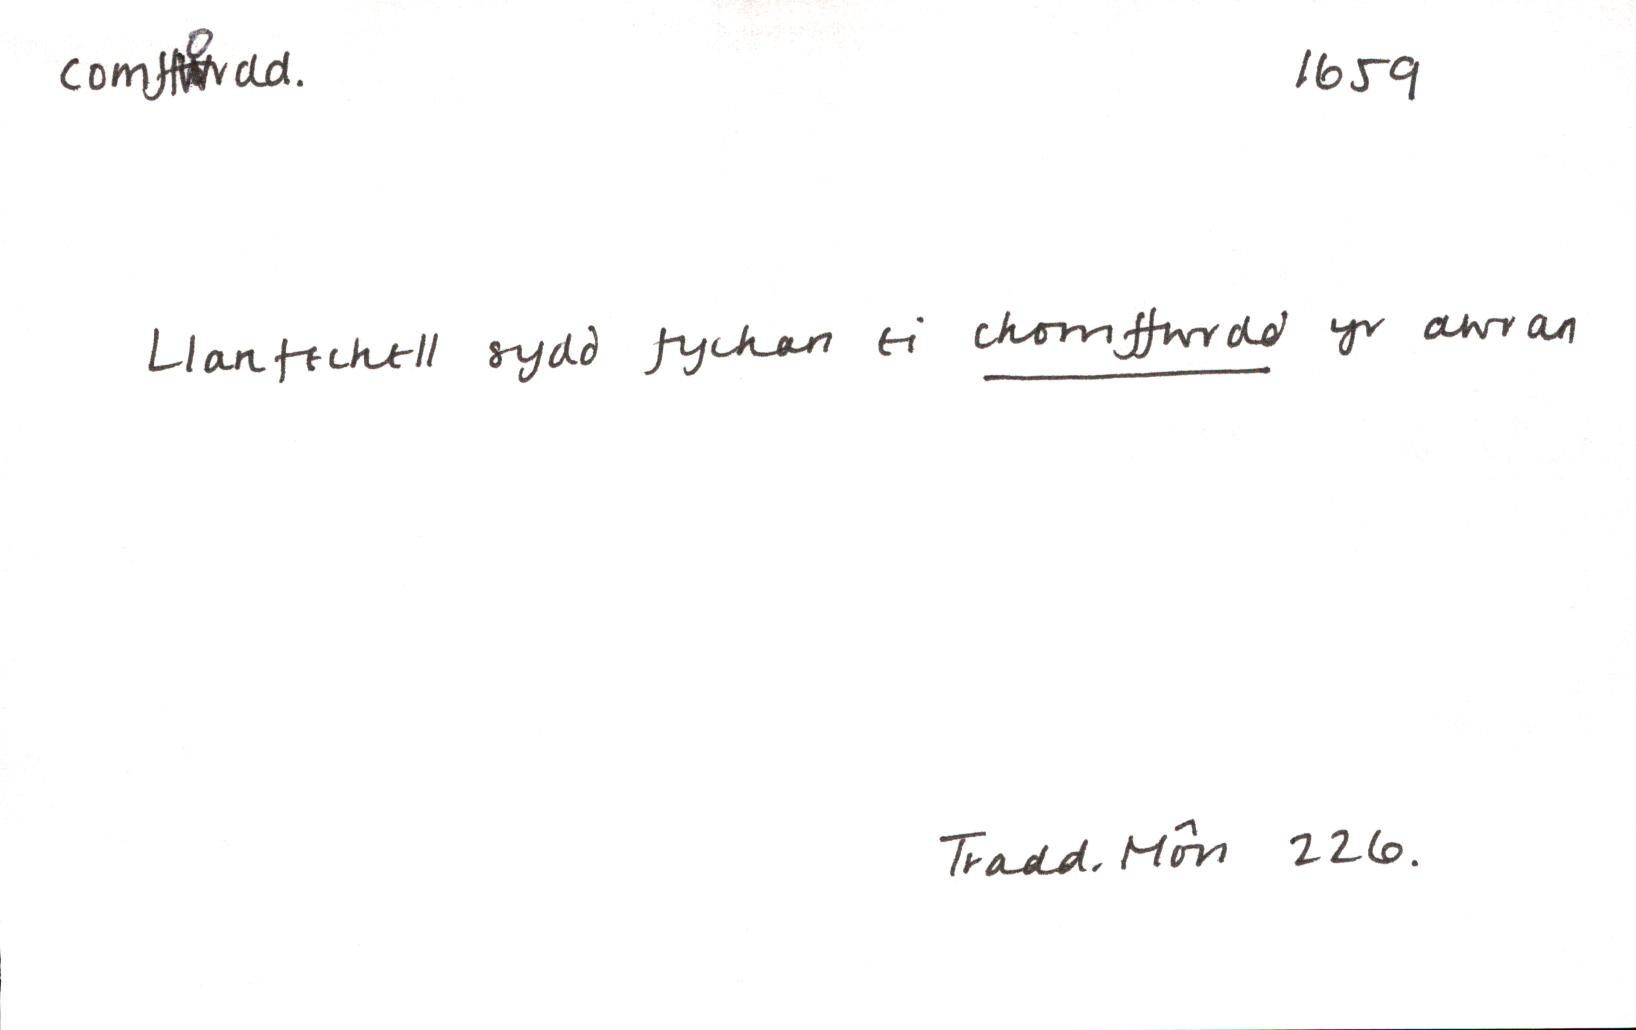 comffordd.
1659
Llanfechell sydd fychan ei chomffwrdd yr awran
Tradd. Môn 226.